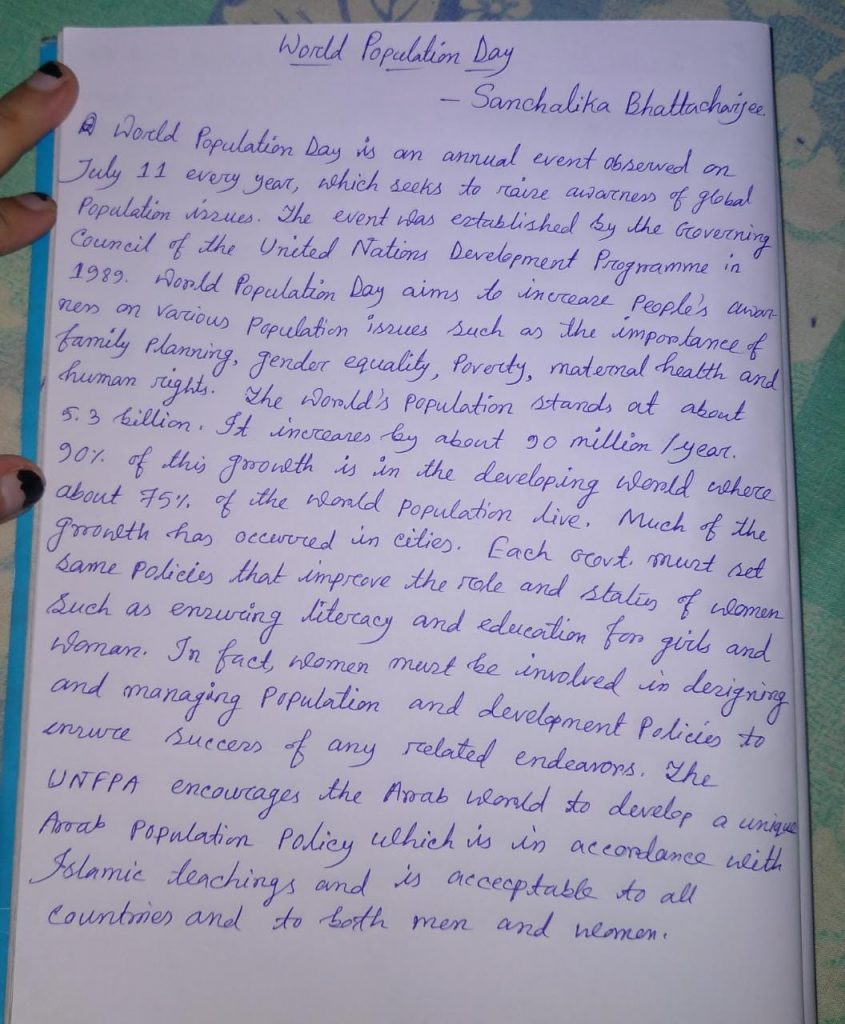 World Population Day
- Sanchalika Bhattacharjee.
World Population Day is an annual event observed on
July 11 every year, which seeks to raise awarness of global
Population issues. The event was established by the Governing
Council of the United Nations Development Programme in
1989. World Population Day aims to increase people's awar-
ness on various population issues such as the importance of
family planning, gender equality, Poverty, maternal health and
human rights. The world's population stands at about
5.3 billion. It increases by about 90 million/year.
90% of this growth is in the developing world where
about 75% of the world population live. Much of the
growth has occurred in cities. Each Govt. must set
same policies that improve the role and status of women
such as ensuring literacy and education for girls and
woman. In fact, women must be involved in designing
and managing population and development Policies to
ensure success of any related endeavors. The
UNFPA encourages the Arab world to develop a unique
Arab Population Policy which is in accordance with
Islamic teachings and is accecptable to all
countries and to both men and women.